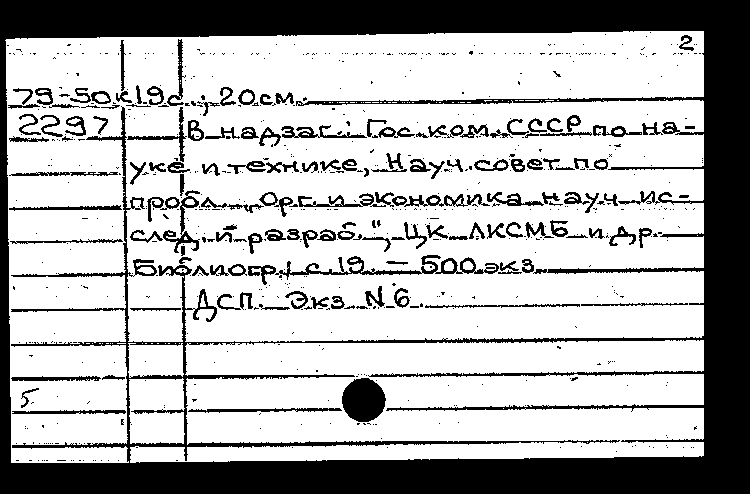 2
79-50к 19с.; 20см.
2297 В надзаг.: Гос. ком. СССР по на-
уке и технике, Науч. совет по
пробл. „Орг. и экономика науч. ис-
след. и разраб.", ЦК ЛКСМБ и др.
Библиогр.: с. 19. — 500 экз.
ДСП. Экз N 6.
5